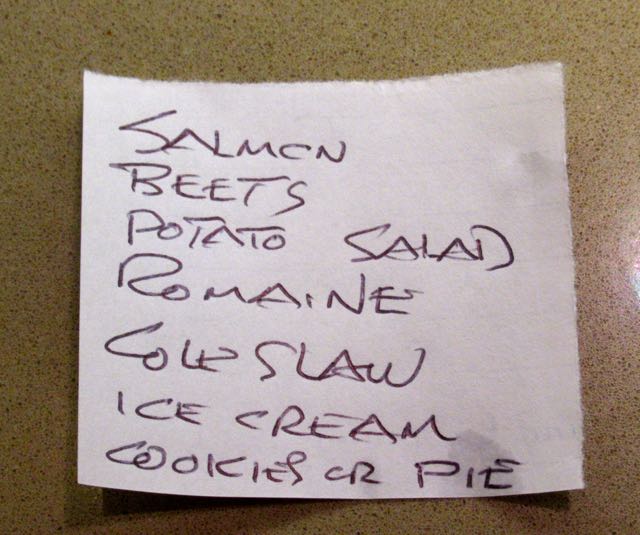 SALMON
BEETS
POTATO SALAD
ROMAINE
COLE SLAW
ICE CREAM
COOKIES OR PIE